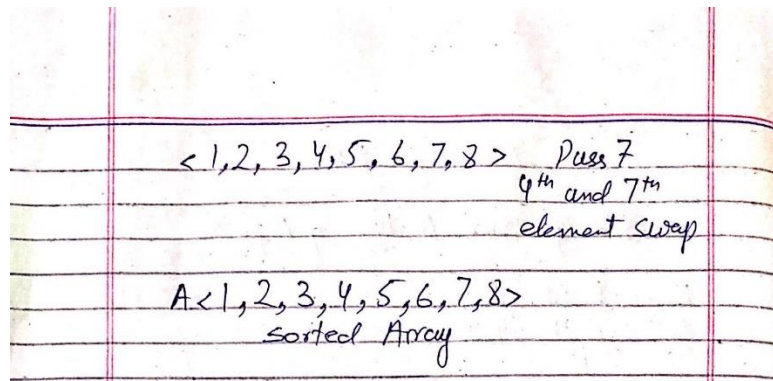 < 1,2,3,4,5,6,7,8 > Pass 7
4th and 7th
element swap
A<1,2,3,4,5,6,7,8>
sorted Array